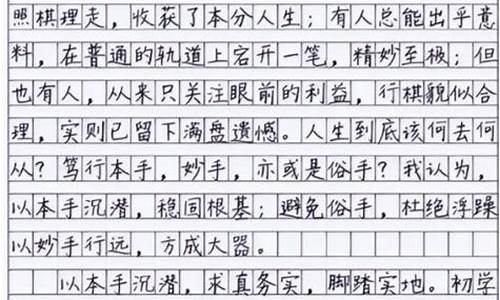 照棋理走，收获了本分人生；有人总能出乎意
料，在普通的轨道上宕开一笔，精妙至极；但
也有人，从来只关注眼前的利益，行棋貌似合
理，实则已留下满盘遗憾。人生到底该何去何
从？笃行本手，妙手，亦或是俗手？我认为，
以本手沉潜，稳固根基；避免俗手，杜绝浮躁
以妙手行远，方成大器。
以本手沉潜，求真务实，脚踏实地。初学